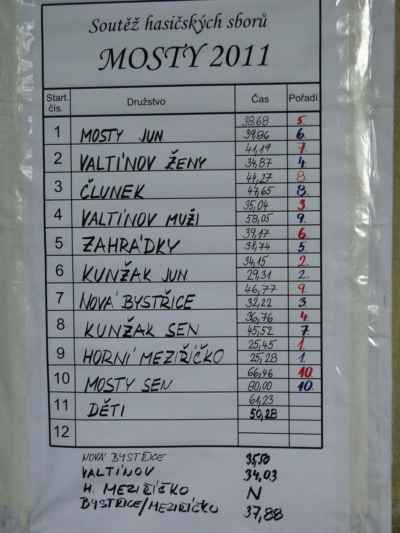 Soutěž hasičských sborů
MOSTY 2011
Start. čís. Družstvo Čas Pořadí
1 MOSTY JUN 38,68 5.
39,86 6.
2 VALTÍNOV ŽENY 41,19 7.
34,87 4.
3 ČLUNEK 44,27 8.
47,65 8.
4 VALTÍNOV MUŽI 35,04 3.
58,05 9.
5 ZAHRÁDKY 39,17 6.
5.
6 KUNŽAK JUN 34,15 2.
29,31 2.
7 NOVÁ BYSTŘICE 46,77 9.
32,22 3.
8 KUNŽAK SEN 36,76 4.
45,52 7.
9 HORNÍ MEZIŘÍČKO 25,45 1.
25,28 1.
10 MOSTY SEN 66,46 10.
80,00 10.
11 DĚTI 61,23
50,28
12
NOVÁ BYSTŘICE
VALTÍNOV 34,03
H. MEZIŘÍČKO N
BYSTŘICE/MEZIŘÍČKO 37,88